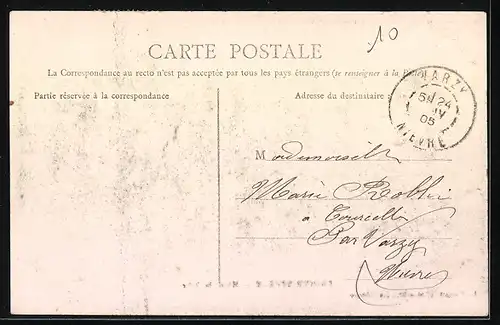 10
CARTE POSTALE
La Correspondance au recto n'est pas acceptée par tous les pays étrangers (se renseigner à la Poste)
Partie réservée à la correspondance
Adresse du destinataire
VARZY
24
05
NIEVRE
Mademoiselle
Marie Roblin
à Courcelles
Par Varzy
Nièvre